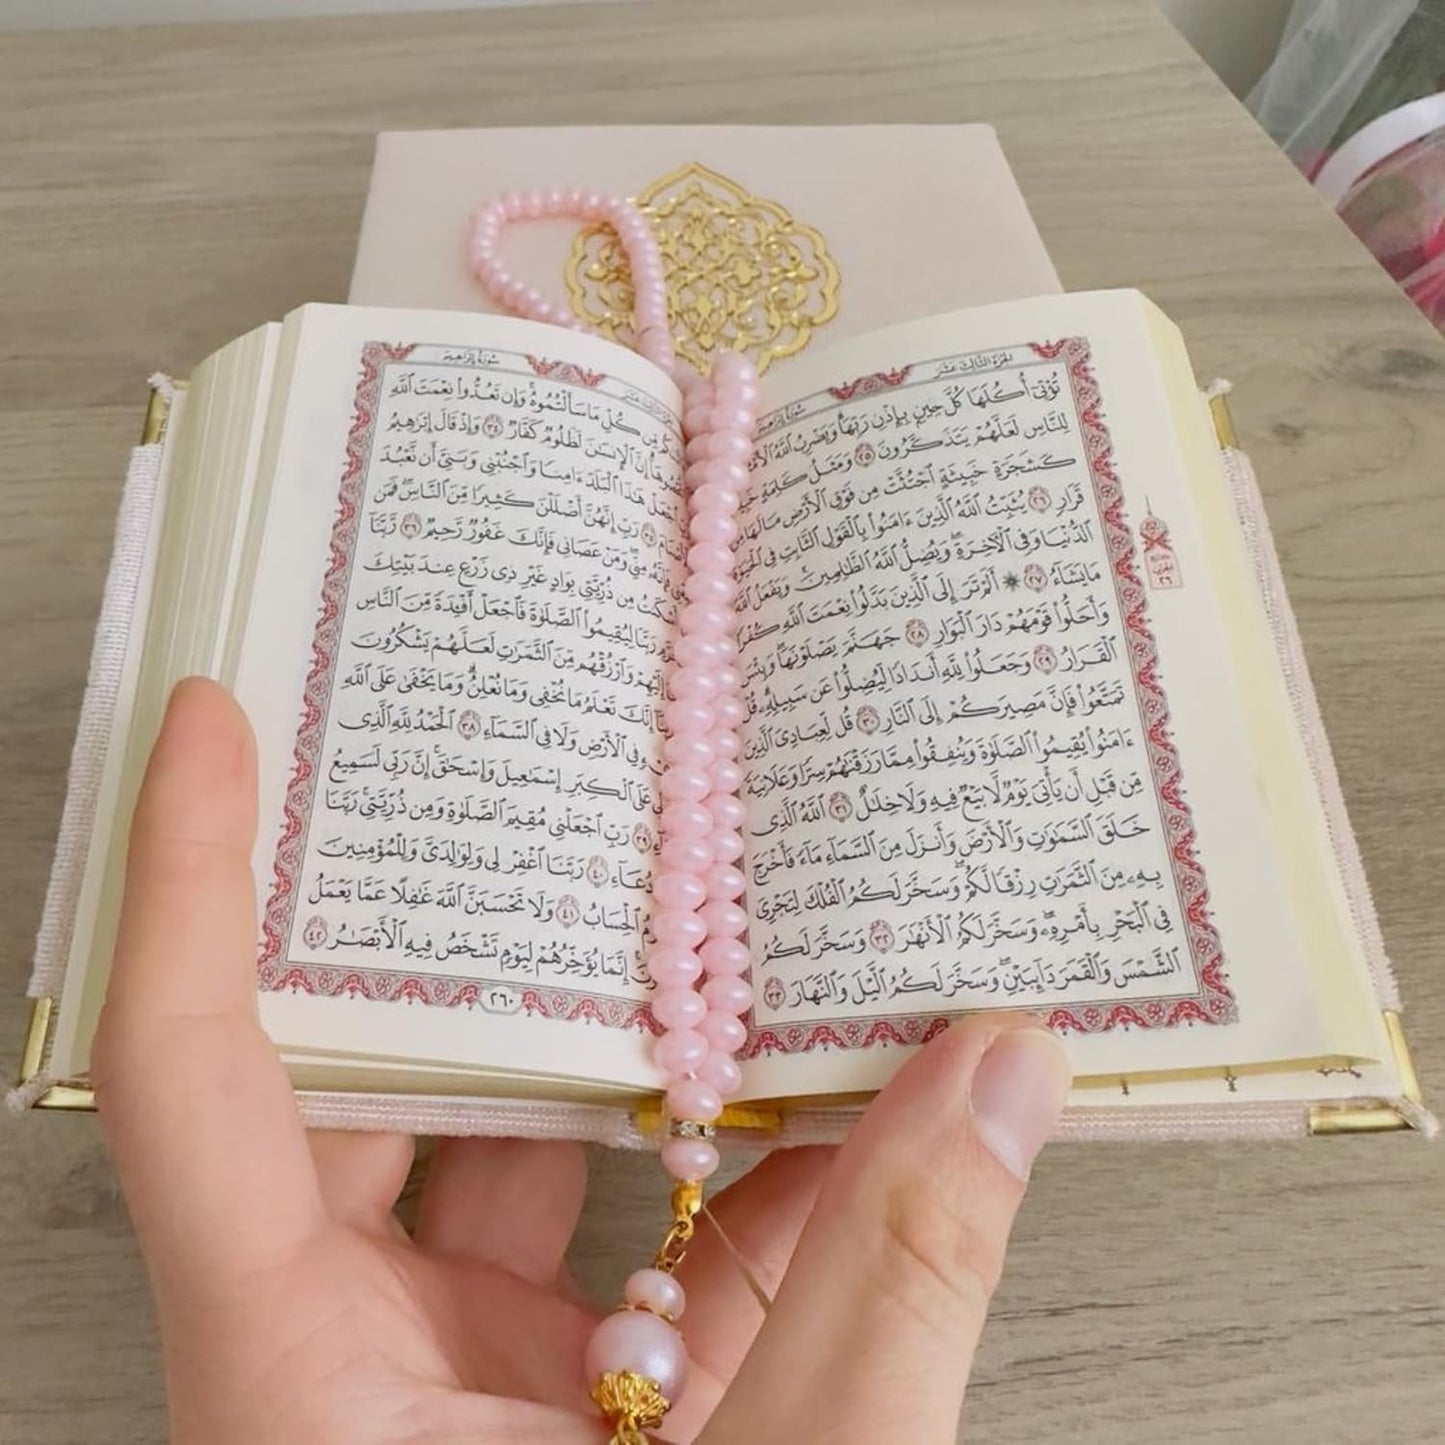 الجزء الثالث عشر
سورة إبراهيم
تُؤْتِىٓ أُكُلَهَا كُلَّ حِينٍۭ بِإِذْنِ رَبِّهَا ۗ وَيَضْرِبُ ٱللَّهُ
لِلنَّاسِ لَعَلَّهُمْ يَتَذَكَّرُونَ ٢٥ وَمَثَلُ كَلِمَةٍ
كَشَجَرَةٍ خَبِيثَةٍ ٱجْتُثَّتْ مِن فَوْقِ ٱلْأَرْضِ مَا لَهَا
قَرَارٍ ٢٦ يُثَبِّتُ ٱللَّهُ ٱلَّذِينَ ءَامَنُوا۟ بِٱلْقَوْلِ ٱلثَّابِتِ فِى
ٱلدُّنْيَا وَفِى ٱلْءَاخِرَةِ ۖ وَيُضِلُّ ٱللَّهُ ٱلظَّٰلِمِينَ ۚ وَيَفْعَلُ ٱللَّهُ
مَا يَشَآءُ ٢٧ ۞ أَلَمْ تَرَ إِلَى ٱلَّذِينَ بَدَّلُوا۟ نِعْمَتَ ٱللَّهِ
وَأَحَلُّوا۟ قَوْمَهُمْ دَارَ ٱلْبَوَارِ ٢٨ جَهَنَّمَ يَصْلَوْنَهَا ۖ وَبِئْسَ
ٱلْقَرَارُ ٢٩ وَجَعَلُوا۟ لِلَّهِ أَندَادًا لِّيُضِلُّوا۟ عَن سَبِيلِهِۦ ۗ قُلْ
تَمَتَّعُوا۟ فَإِنَّ مَصِيرَكُمْ إِلَى ٱلنَّارِ ٣٠ قُل لِّعِبَادِىَ ٱلَّذِينَ
ءَامَنُوا۟ يُقِيمُوا۟ ٱلصَّلَوٰةَ وَيُنفِقُوا۟ مِمَّا رَزَقْنَٰهُمْ سِرًّا وَعَلَانِيَةً
مِّن قَبْلِ أَن يَأْتِىَ يَوْمٌ لَّا بَيْعٌ فِيهِ وَلَا خِلَٰلٌ ٣١ ٱللَّهُ ٱلَّذِى
خَلَقَ ٱلسَّمَٰوَٰتِ وَٱلْأَرْضَ وَأَنزَلَ مِنَ ٱلسَّمَآءِ مَآءً فَأَخْرَجَ
بِهِۦ مِنَ ٱلثَّمَرَٰتِ رِزْقًا لَّكُمْ ۖ وَسَخَّرَ لَكُمُ ٱلْفُلْكَ لِتَجْرِىَ
فِى ٱلْبَحْرِ بِأَمْرِهِۦ ۖ وَسَخَّرَ لَكُمُ ٱلْأَنْهَٰرَ ٣٢ وَسَخَّرَ لَكُمُ
ٱلشَّمْسَ وَٱلْقَمَرَ دَآئِبَيْنِ ۖ وَسَخَّرَ لَكُمُ ٱلَّيْلَ وَٱلنَّهَارَ ٣٣
سورة إبراهيم
مِّن كُلِّ مَا سَأَلْتُمُوهُ ۚ وَإِن تَعُدُّوا۟ نِعْمَتَ ٱللَّهِ
إِنَّ ٱلْإِنسَٰنَ لَظَلُومٌ كَفَّارٌ ٣٤ وَإِذْ قَالَ إِبْرَٰهِيمُ
هَٰذَا ٱلْبَلَدَ ءَامِنًا وَٱجْنُبْنِى وَبَنِىَّ أَن نَّعْبُدَ
٣٥ رَبِّ إِنَّهُنَّ أَضْلَلْنَ كَثِيرًا مِّنَ ٱلنَّاسِ ۖ فَمَن
مِنِّى ۖ وَمَنْ عَصَانِى فَإِنَّكَ غَفُورٌ رَّحِيمٌ ٣٦ رَّبَّنَآ
مِن ذُرِّيَّتِى بِوَادٍ غَيْرِ ذِى زَرْعٍ عِندَ بَيْتِكَ
رَبَّنَا لِيُقِيمُوا۟ ٱلصَّلَوٰةَ فَٱجْعَلْ أَفْـِٔدَةً مِّنَ ٱلنَّاسِ
إِلَيْهِمْ وَٱرْزُقْهُم مِّنَ ٱلثَّمَرَٰتِ لَعَلَّهُمْ يَشْكُرُونَ
إِنَّكَ تَعْلَمُ مَا نُخْفِى وَمَا نُعْلِنُ ۗ وَمَا يَخْفَىٰ عَلَى ٱللَّهِ
فِى ٱلْأَرْضِ وَلَا فِى ٱلسَّمَآءِ ٣٨ ٱلْحَمْدُ لِلَّهِ ٱلَّذِى
عَلَى ٱلْكِبَرِ إِسْمَٰعِيلَ وَإِسْحَٰقَ ۚ إِنَّ رَبِّى لَسَمِيعُ
٣٩ رَبِّ ٱجْعَلْنِى مُقِيمَ ٱلصَّلَوٰةِ وَمِن ذُرِّيَّتِى ۚ رَبَّنَا
دُعَآءِ ٤٠ رَبَّنَا ٱغْفِرْ لِى وَلِوَٰلِدَىَّ وَلِلْمُؤْمِنِينَ
ٱلْحِسَابُ ٤١ وَلَا تَحْسَبَنَّ ٱللَّهَ غَٰفِلًا عَمَّا يَعْمَلُ
إِنَّمَا يُؤَخِّرُهُمْ لِيَوْمٍ تَشْخَصُ فِيهِ ٱلْأَبْصَٰرُ ٤٢
٢٦٠